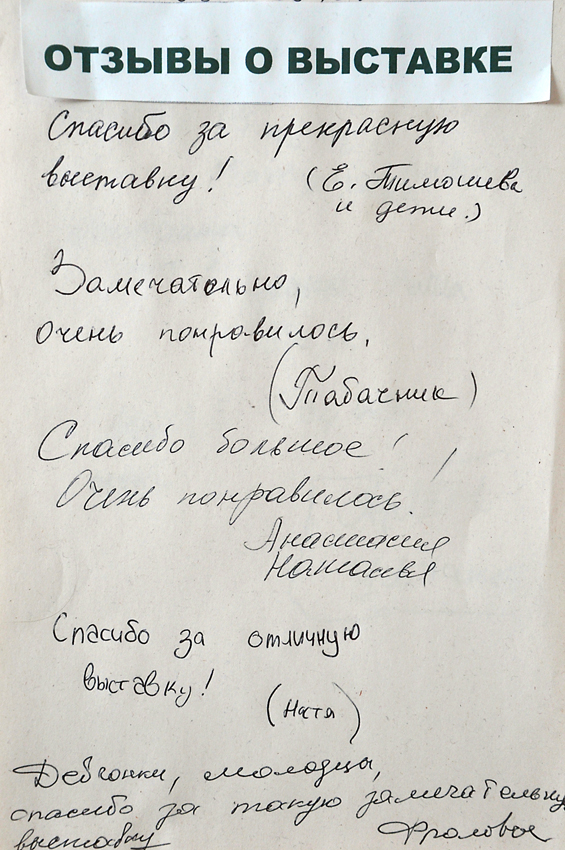 ОТЗЫВЫ О ВЫСТАВКЕ
Спасибо за прекрасную
выставку! (Е. Тимошева
и дети.)
Замечательно,
очень понравилось.
(Табачник)
Спасибо большое!
Очень понравилось!
Анастасия
Наталья
Спасибо за отличную
выставку!
(Настя)
Девчонки, молодцы,
спасибо за такую замечательную
выставку Фроловы